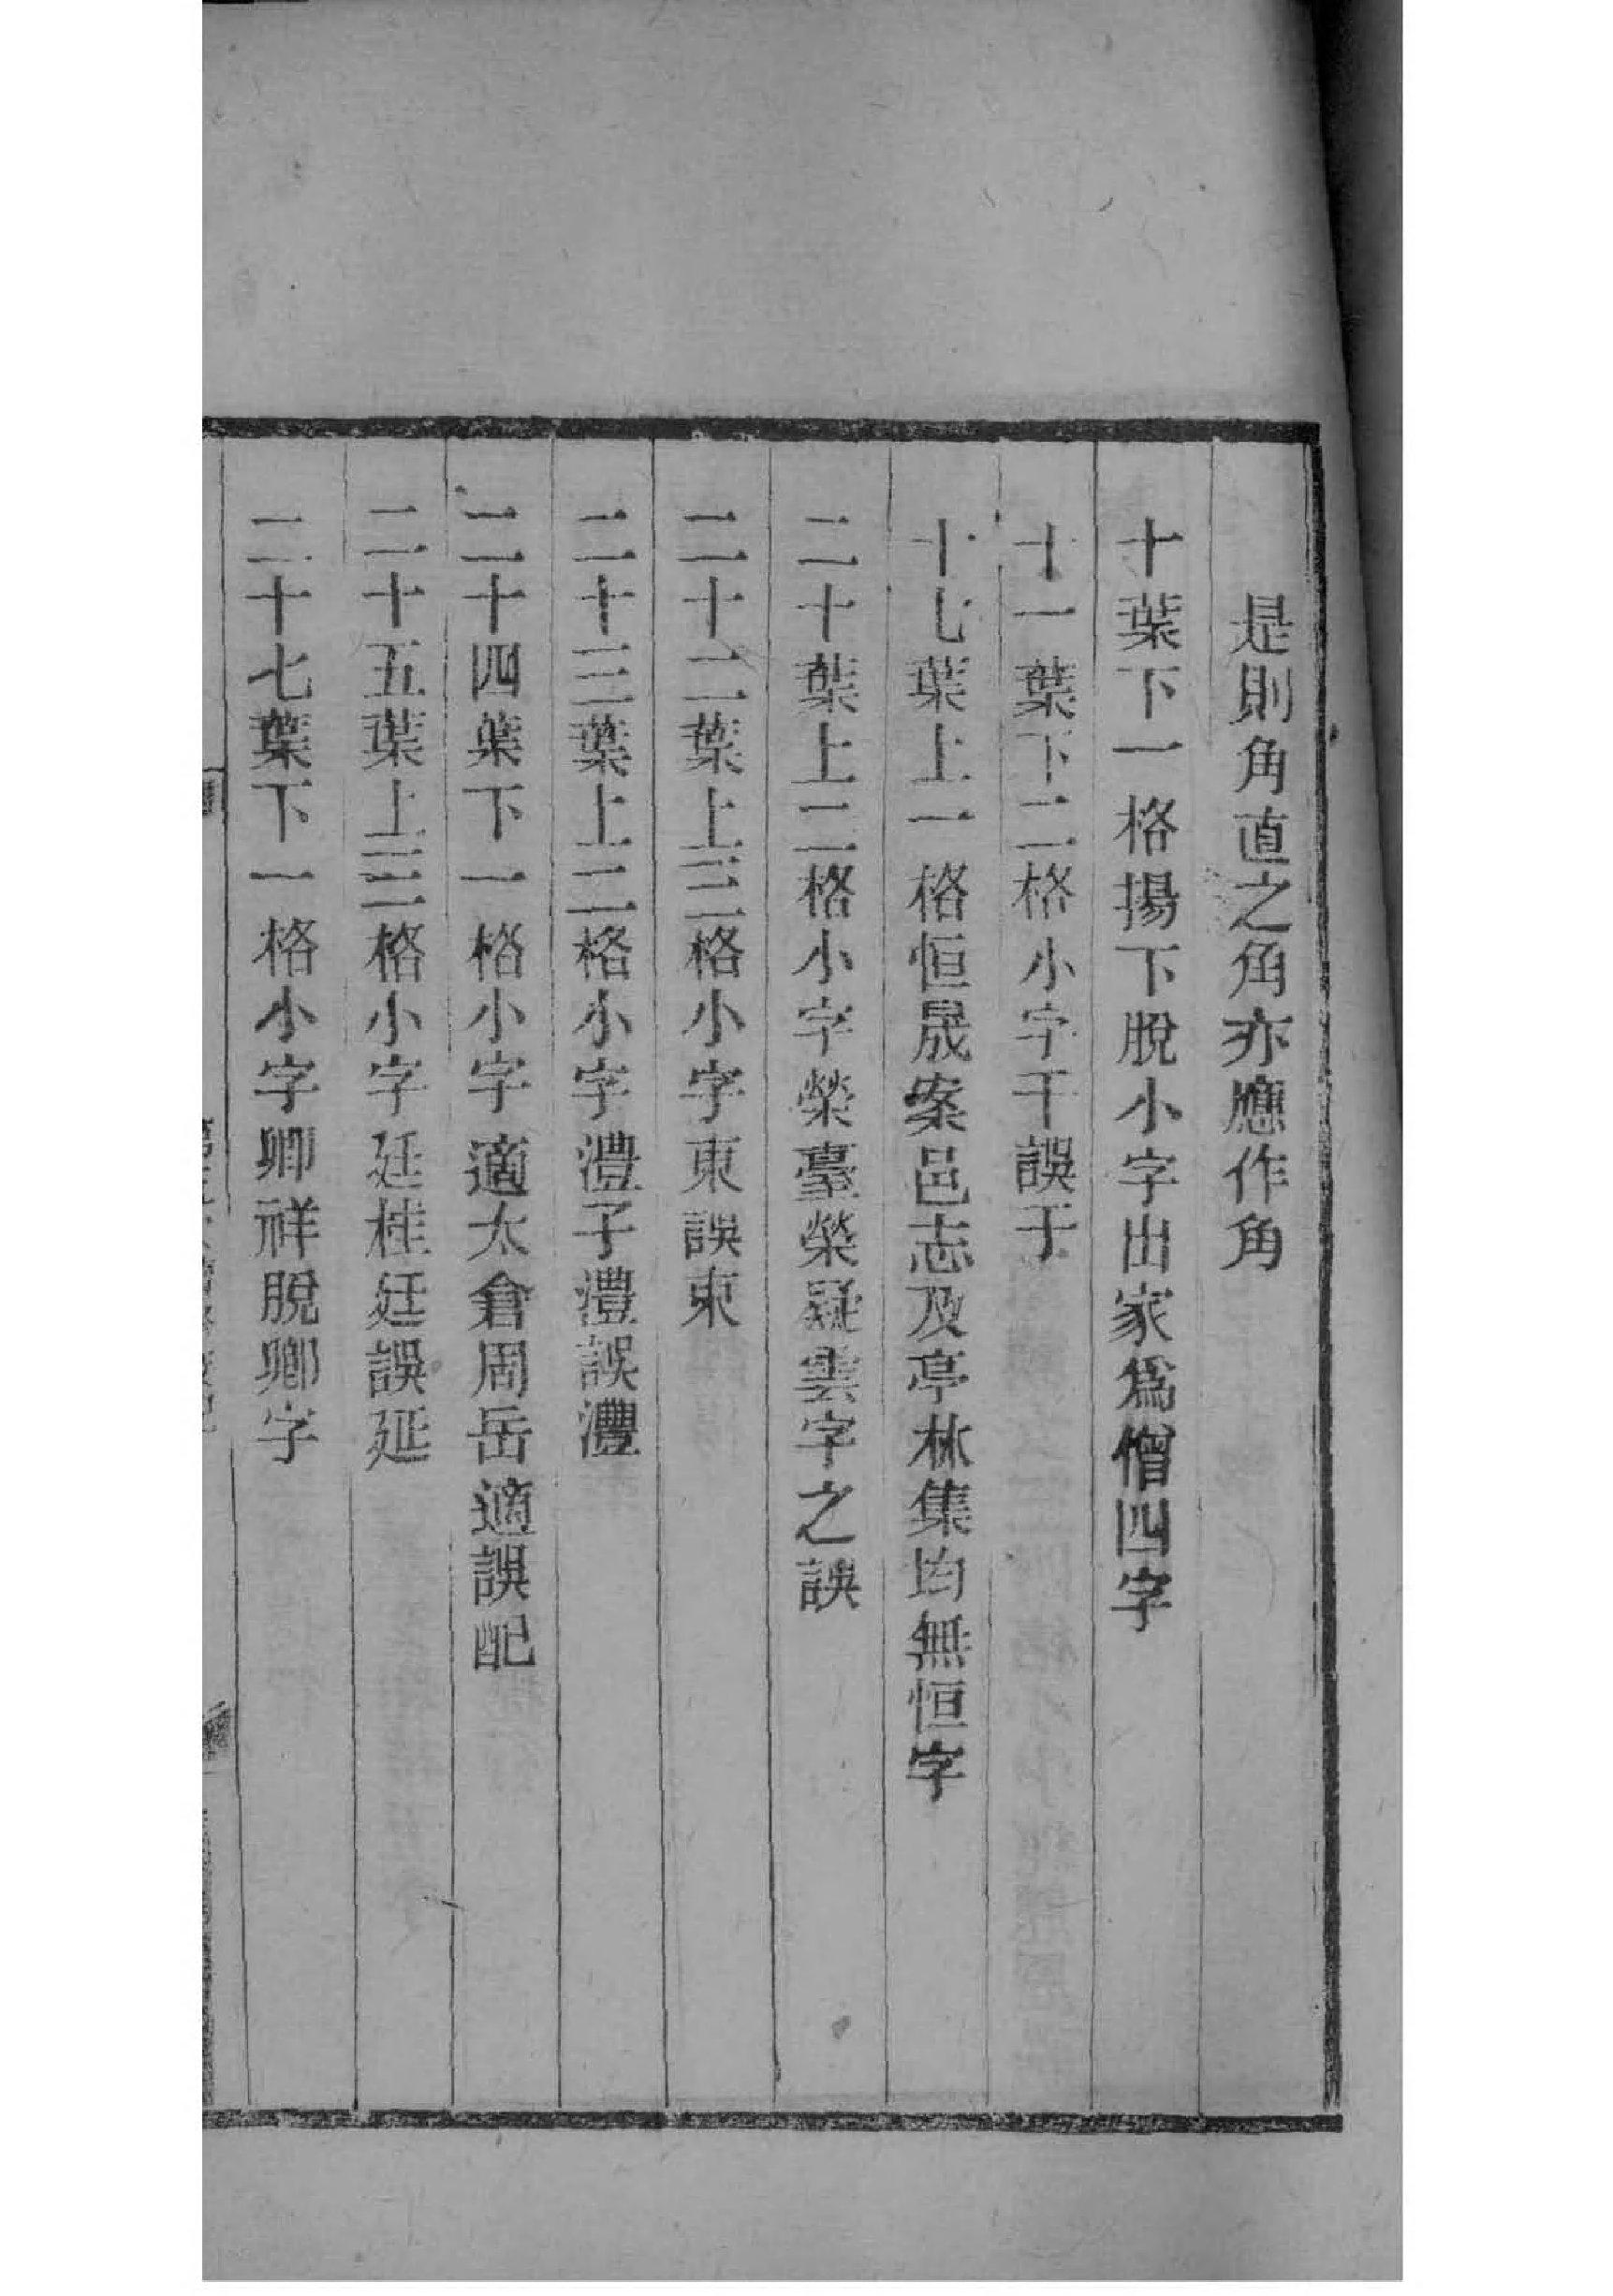 是則角直之角亦應作角
十葉下一格揚下脫小字出家爲僧四字
十一葉下二格小字干誤于
十七葉上一格恒晟案邑志及亭林集均無恒字
二十葉上二格小字榮臺榮疑雲字之誤
二十二葉上三格小字東誤東
二十三葉上二格小字澧子澧誤灃
二十四葉下一格小字適太倉周岳適誤配
二十五葉上三格小字廷桂廷誤延
二十七葉下一格小字卿祥脫卿字